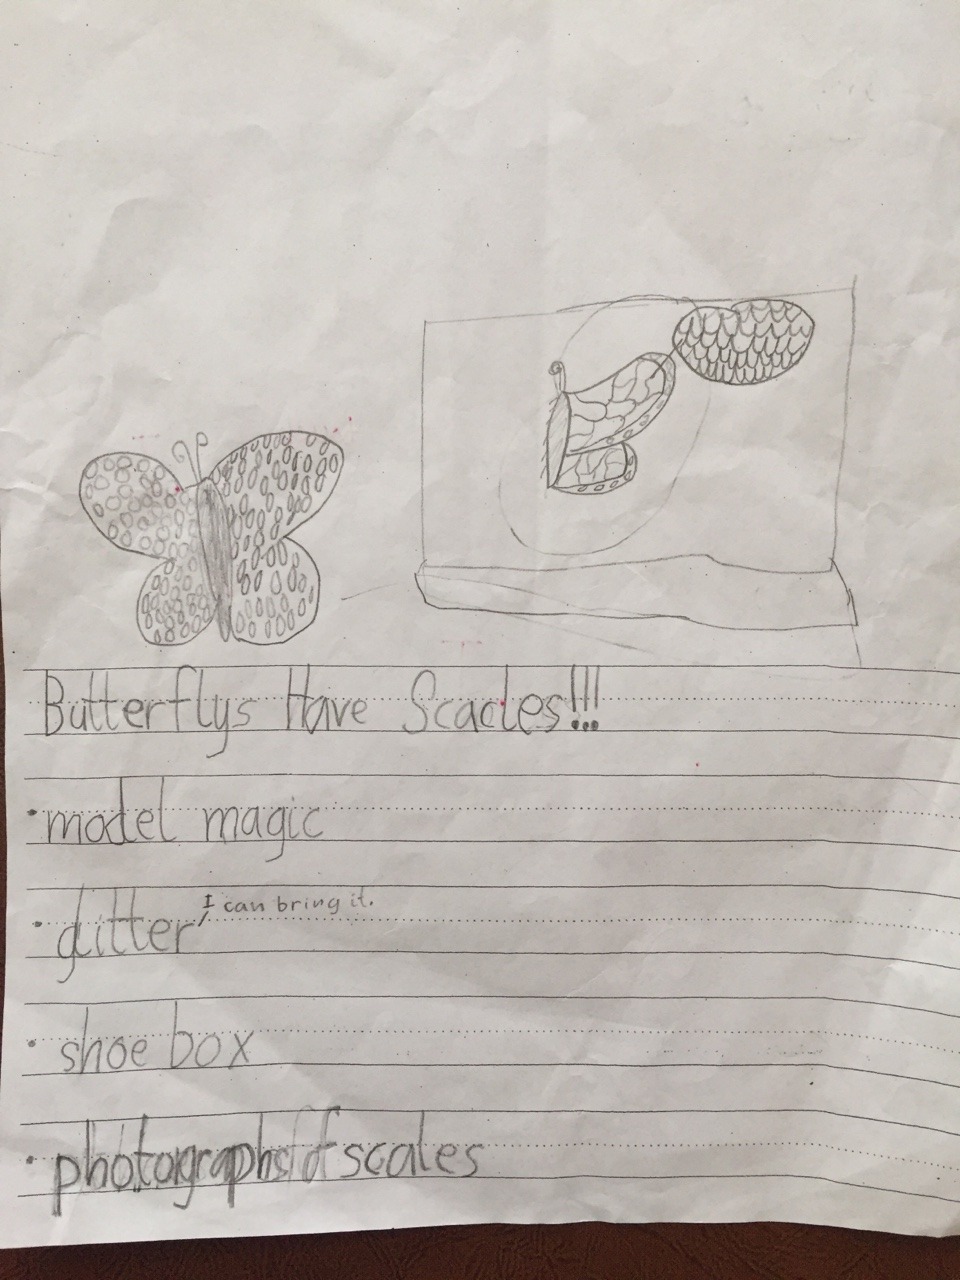 Butterflys Have Scacles!!!
• model magic
• glitter, I can bring it.
• shoe box
• photographs of scales